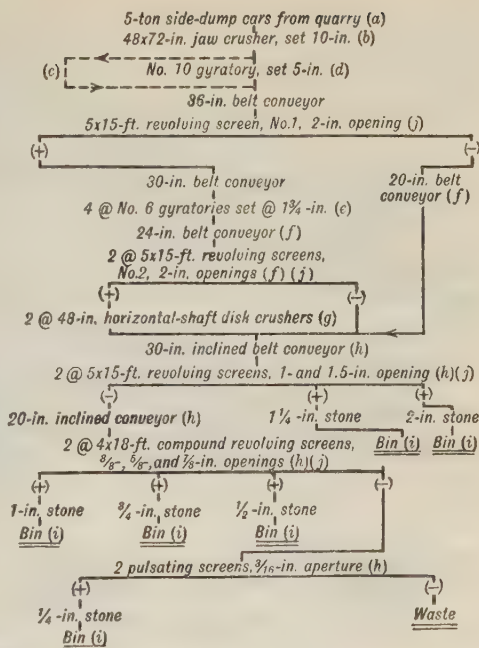 5-ton side-dump cars from quarry (a)
48x72-in. jaw crusher, set 10-in. (b)
(c)
No. 10 gyratory, set 5-in. (d)
36-in. belt conveyor
5x15-ft. revolving screen, No.1, 2-in. opening (j)
(+) (-)
30-in. belt conveyor
20-in. belt
conveyor (f)
4 @ No. 6 gyratories set @ 1¾-in. (e)
24-in. belt conveyor (f)
2 @ 5x15-ft. revolving screens,
No.2, 2-in. openings (f) (j)
(+) (-)
2 @ 48-in. horizontal-shaft disk crushers (g)
30-in. inclined belt conveyor (h)
2 @ 5x15-ft. revolving screens, 1- and 1.5-in. opening (h)(j)
(-) (+) (+)
20-in. inclined conveyor (h)
1¼-in. stone
2-in. stone
Bin (i)
Bin (i)
2 @ 4x18-ft. compound revolving screens,
3/8-, 5/8-, and 7/8-in. openings (h)(j)
(+) (+) (+) (-)
1-in. stone
¾-in. stone
½-in. stone
Bin (i)
Bin (i)
Bin (i)
2 pulsating screens, 3/16-in. aperture (h)
(+) (-)
¼-in. stone
Waste
Bin (i)